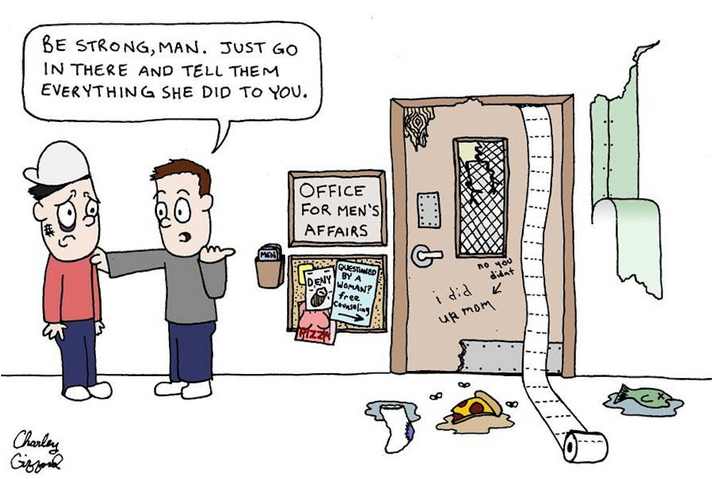 BE STRONG, MAN. JUST GO
IN THERE AND TELL THEM
EVERYTHING SHE DID TO YOU.
OFFICE
FOR MEN'S
AFFAIRS
MEN
DENY
PIZZA
QUESTIONED
BY A
WOMAN?
free
counseling
no you
didnt
i did
ur mom
Charley